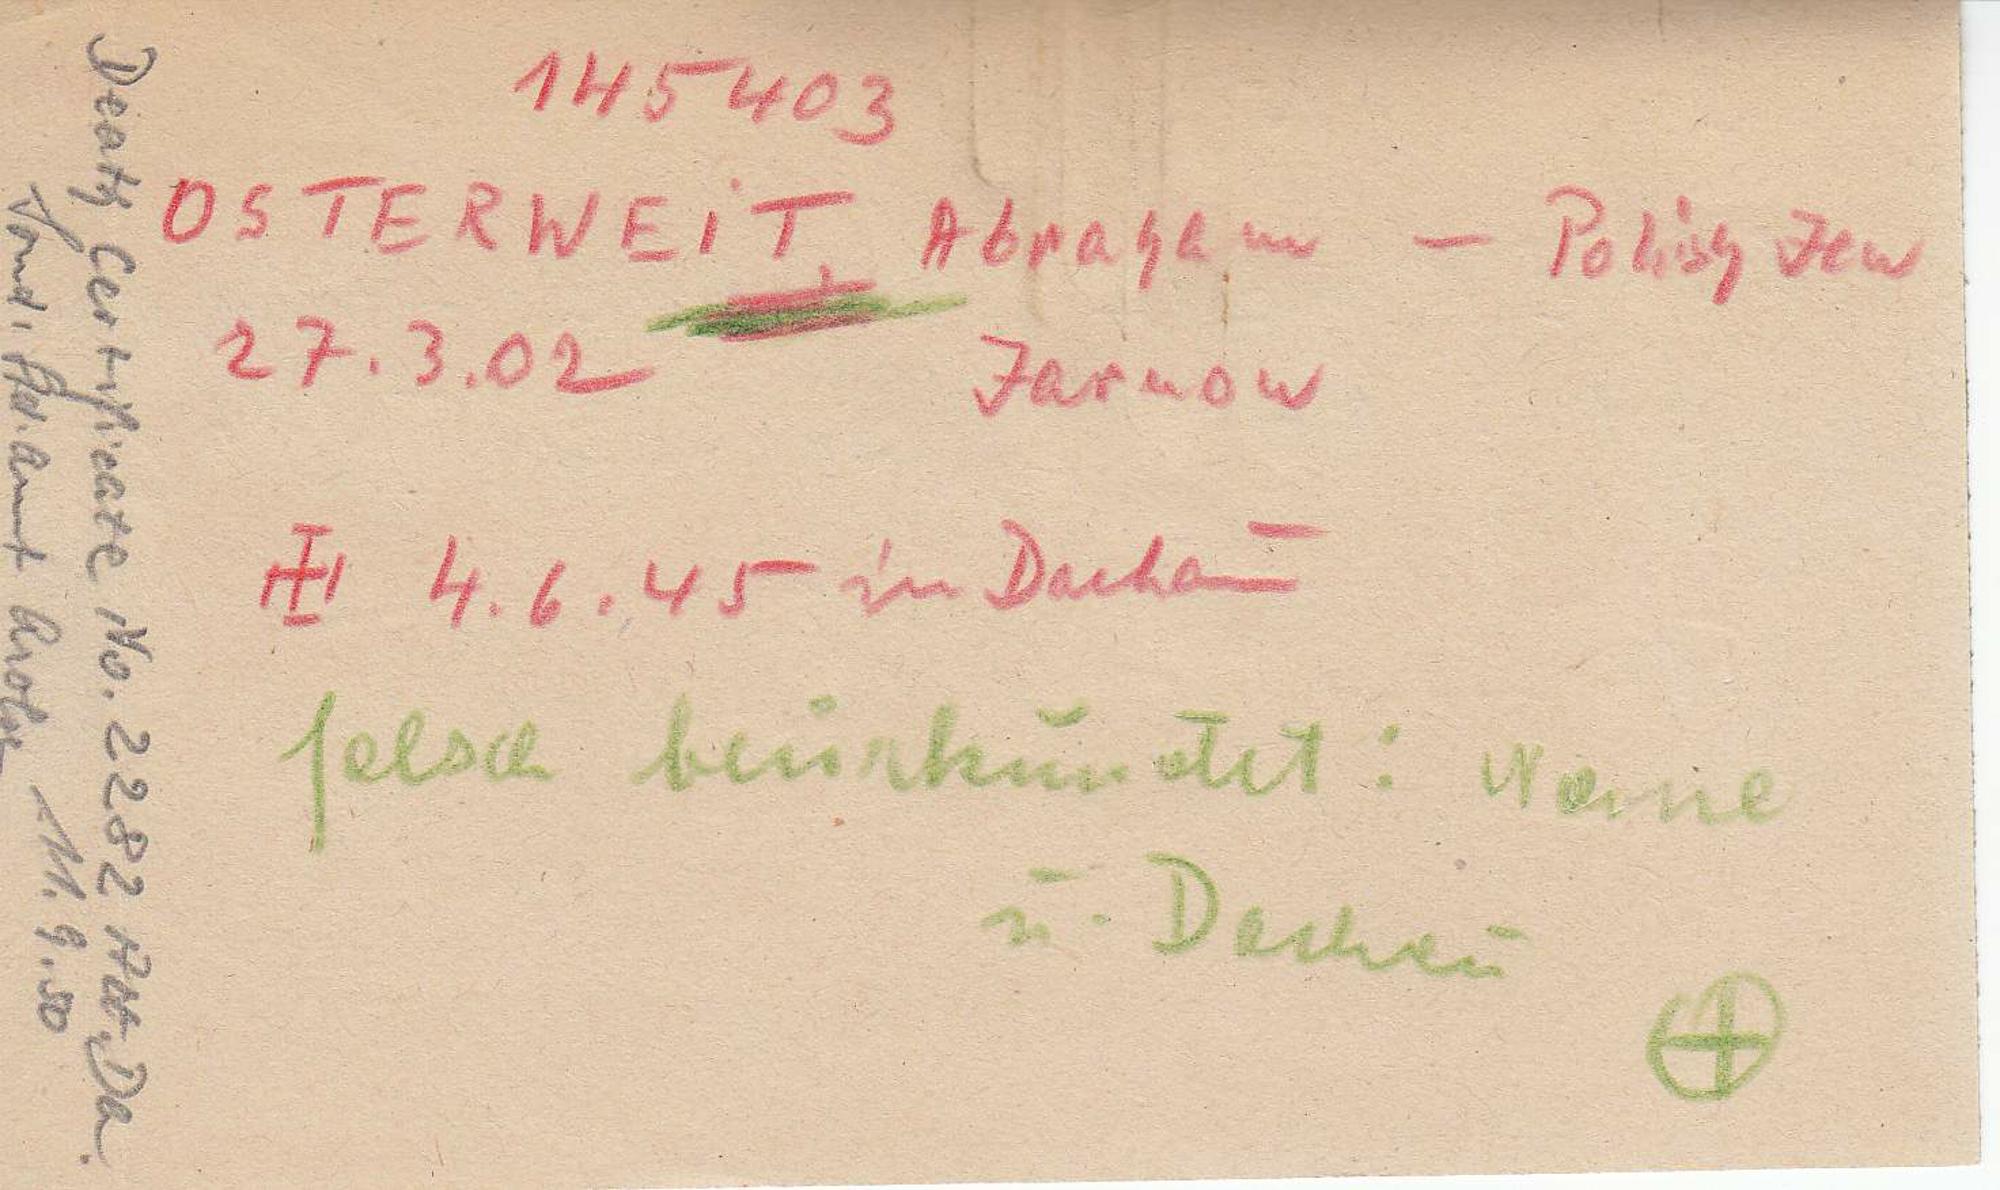 145403
OSTERWEIT, Abraham — Polish Jew
27.3.02 Jarnow
4.6.45 in Dachau
falsch beurkundet: Name
u. Dachau
Death Certificate No. 2282 Abt. Da.
Arolsen 11.9.50